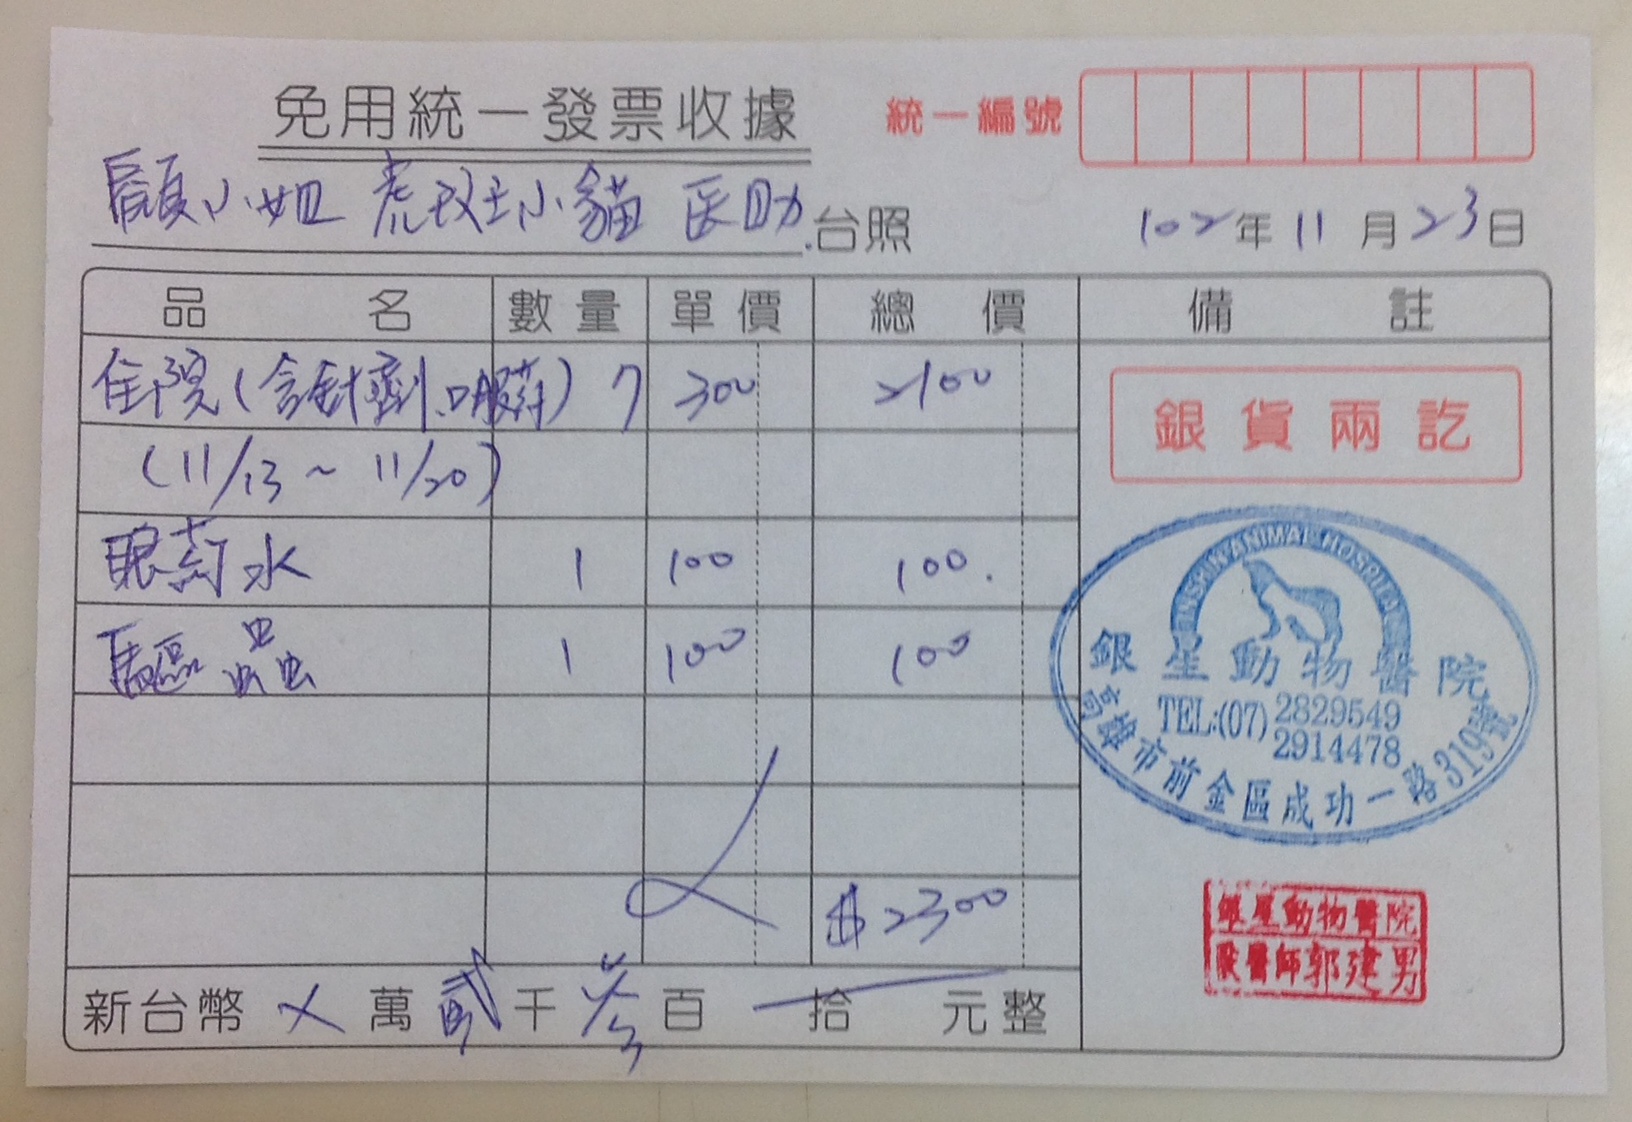 免用統一發票收據
統一編號
顧小姐 虎斑小貓 醫助 台照
102年11月23日
品名 數量 單價 總價 備註
住院(含針劑.口服葯) 7 300 2100
(11/13~11/20)
眼葯水 1 100 100.
驅蟲 1 100 100
$2300
新台幣 萬貳千叁百拾 元整
銀貨兩訖
INSHIN ANIMAL HOSPITAL
銀星動物醫院
TEL:(07)2829549
2914478
高雄市前金區成功一路319號
銀星動物醫院
獸醫師郭建男